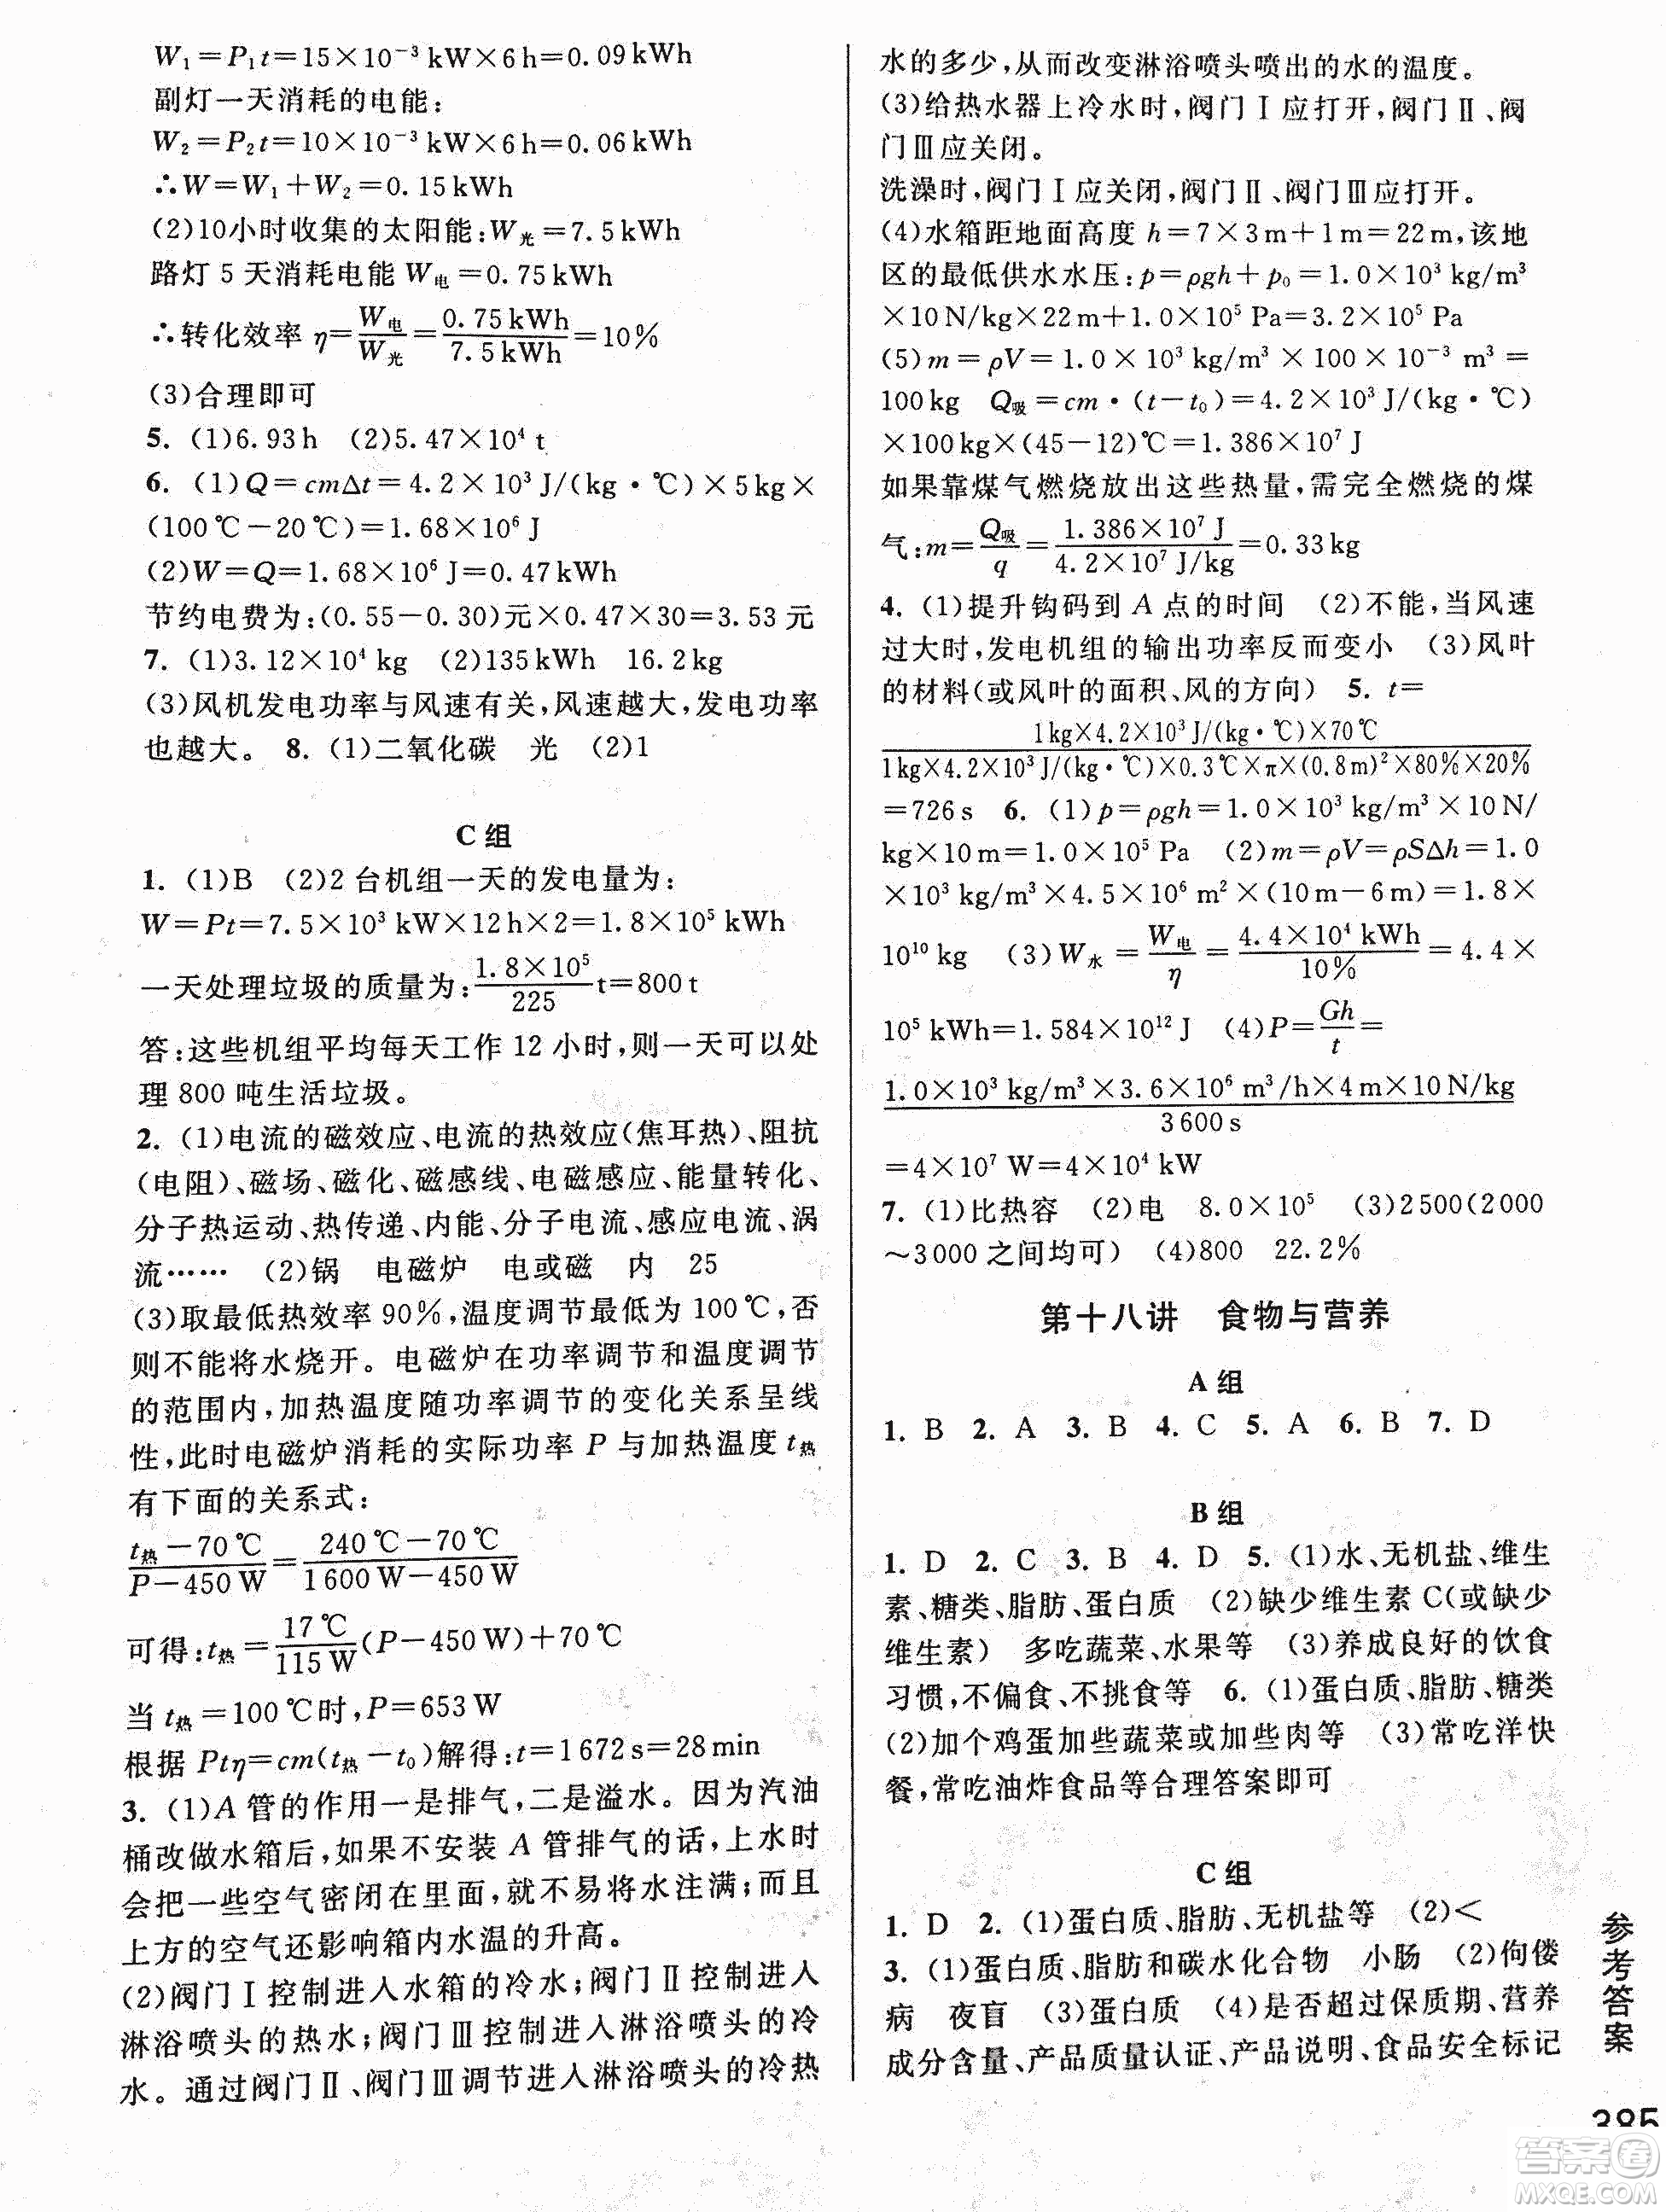 W₁=P₁t=15×10⁻³ kW×6 h=0.09 kWh
副灯一天消耗的电能:
W₂=P₂t=10×10⁻³ kW×6 h=0.06 kWh
∴W=W₁+W₂=0.15 kWh
(2)10小时收集的太阳能:W光=7.5 kWh
路灯 5 天消耗电能 W电=0.75 kWh
∴转化效率 η=W电/W光=0.75 kWh/7.5 kWh=10%
(3)合理即可
5. (1)6.93 h (2)5.47×10⁴ t
6. (1)Q=cmΔt=4.2×10³ J/(kg·℃)×5 kg×
(100 ℃-20 ℃)=1.68×10⁶ J
(2)W=Q=1.68×10⁶ J=0.47 kWh
节约电费为:(0.55-0.30)元×0.47×30=3.53 元
7. (1)3.12×10⁴ kg (2)135 kWh 16.2 kg
(3)风机发电功率与风速有关,风速越大,发电功率
也越大。 8. (1)二氧化碳 光 (2)1
C 组
1. (1)B (2)2 台机组一天的发电量为:
W=Pt=7.5×10³ kW×12 h×2=1.8×10⁵ kWh
一天处理垃圾的质量为:1.8×10⁵/225 t=800 t
答:这些机组平均每天工作 12 小时,则一天可以处
理 800 吨生活垃圾。
2. (1)电流的磁效应、电流的热效应(焦耳热)、阻抗
(电阻)、磁场、磁化、磁感线、电磁感应、能量转化、
分子热运动、热传递、内能、分子电流、感应电流、涡
流…… (2)锅 电磁炉 电或磁 内 25
(3)取最低热效率 90%,温度调节最低为 100 ℃,否
则不能将水烧开。电磁炉在功率调节和温度调节
的范围内,加热温度随功率调节的变化关系呈线
性,此时电磁炉消耗的实际功率 P 与加热温度 t热
有下面的关系式:
(t热-70 ℃)/(P-450 W)=(240 ℃-70 ℃)/(1 600 W-450 W)
可得:t热=17 ℃/115 W(P-450 W)+70 ℃
当 t热=100 ℃时,P=653 W
根据 Ptη=cm(t热-t₀)解得:t=1 672 s=28 min
3. (1)A 管的作用一是排气,二是溢水。因为汽油
桶改做水箱后,如果不安装 A 管排气的话,上水时
会把一些空气密闭在里面,就不易将水注满;而且
上方的空气还影响箱内水温的升高。
(2)阀门Ⅰ控制进入水箱的冷水;阀门Ⅱ控制进入
淋浴喷头的热水;阀门Ⅲ控制进入淋浴喷头的冷
水。通过阀门Ⅱ、阀门Ⅲ调节进入淋浴喷头的冷热
水的多少,从而改变淋浴喷头喷出的水的温度。
(3)给热水器上冷水时,阀门Ⅰ应打开,阀门Ⅱ、阀
门Ⅲ应关闭。
洗澡时,阀门Ⅰ应关闭,阀门Ⅱ、阀门Ⅲ应打开。
(4)水箱距地面高度 h=7×3 m+1 m=22 m,该地
区的最低供水水压:p=ρgh+p₀=1.0×10³ kg/m³
×10 N/kg×22 m+1.0×10⁵ Pa=3.2×10⁵ Pa
(5)m=ρV=1.0×10³ kg/m³×100×10⁻³ m³=
100 kg Q吸=cm·(t-t₀)=4.2×10³ J/(kg·℃)
×100 kg×(45-12)℃=1.386×10⁷ J
如果靠煤气燃烧放出这些热量,需完全燃烧的煤
气:m=Q吸/q=1.386×10⁷ J/4.2×10⁷ J/kg=0.33 kg
4. (1)提升钩码到 A 点的时间 (2)不能,当风速
过大时,发电机组的输出功率反而变小 (3)风叶
的材料(或风叶的面积、风的方向) 5. t=
1 kg×4.2×10³ J/(kg·℃)×70 ℃
1 kg×4.2×10³ J/(kg·℃)×0.3 ℃×π×(0.8 m)²×80%×20%
=726 s 6. (1)p=ρgh=1.0×10³ kg/m³×10 N/
kg×10 m=1.0×10⁵ Pa (2)m=ρV=ρSΔh=1.0
×10³ kg/m³×4.5×10⁶ m²×(10 m-6 m)=1.8×
10¹⁰ kg (3)W水=W电/η=4.4×10⁴ kWh/10%=4.4×
10⁵ kWh=1.584×10¹² J (4)P=Gh/t=
1.0×10³ kg/m³×3.6×10⁶ m³/h×4 m×10 N/kg
3 600 s
=4×10⁷ W=4×10⁴ kW
7. (1)比热容 (2)电 8.0×10⁵ (3)2 500(2 000
~3 000 之间均可) (4)800 22.2%
第十八讲 食物与营养
A 组
1. B 2. A 3. B 4. C 5. A 6. B 7. D
B 组
1. D 2. C 3. B 4. D 5. (1)水、无机盐、维生
素、糖类、脂肪、蛋白质 (2)缺少维生素 C(或缺少
维生素) 多吃蔬菜、水果等 (3)养成良好的饮食
习惯,不偏食、不挑食等 6. (1)蛋白质、脂肪、糖类
(2)加个鸡蛋加些蔬菜或加些肉等 (3)常吃洋快
餐,常吃油炸食品等合理答案即可
C 组
1. D 2. (1)蛋白质、脂肪、无机盐等 (2)<
3. (1)蛋白质、脂肪和碳水化合物 小肠 (2)佝偻
病 夜盲 (3)蛋白质 (4)是否超过保质期、营养
成分含量、产品质量认证、产品说明、食品安全标记
参考答案
385
答案圈
MXQE.COM